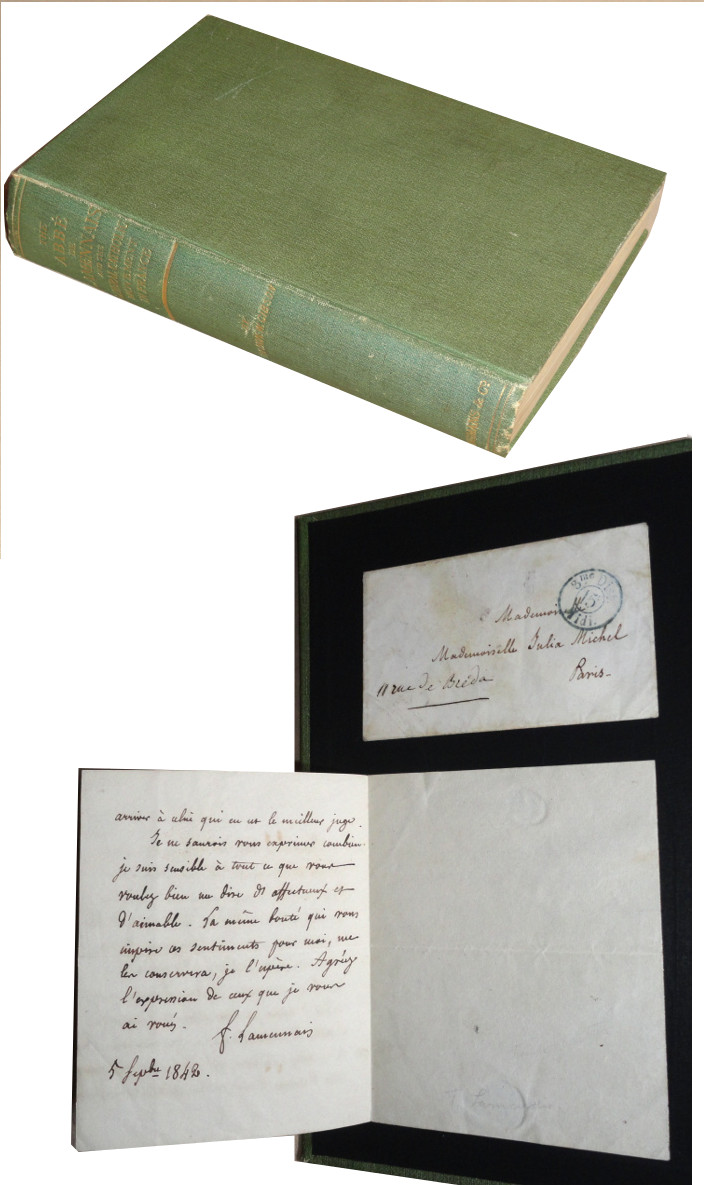 THE
ABBÉ
DE
LAMENNAIS
AND THE
FRANCE
BY
GIBSON
& Co
3me Dist
15
Midi
Mademoiselle Julia Michel
11 rue de Bréda
Paris
arriver à celui qui en est le meilleur juge.
Je ne saurois vous exprimer combien
je suis sensible à tout ce que vous
voulez bien me dire d'affectueux et
d'aimable. La même bonté qui vous
inspire ces sentiments pour moi, me
les conservera, je l'espère. Agréez
l'expression de ceux que je vous
ai voués.
F. Lamennais
5 Sepbre 1842.
F. Lamennais